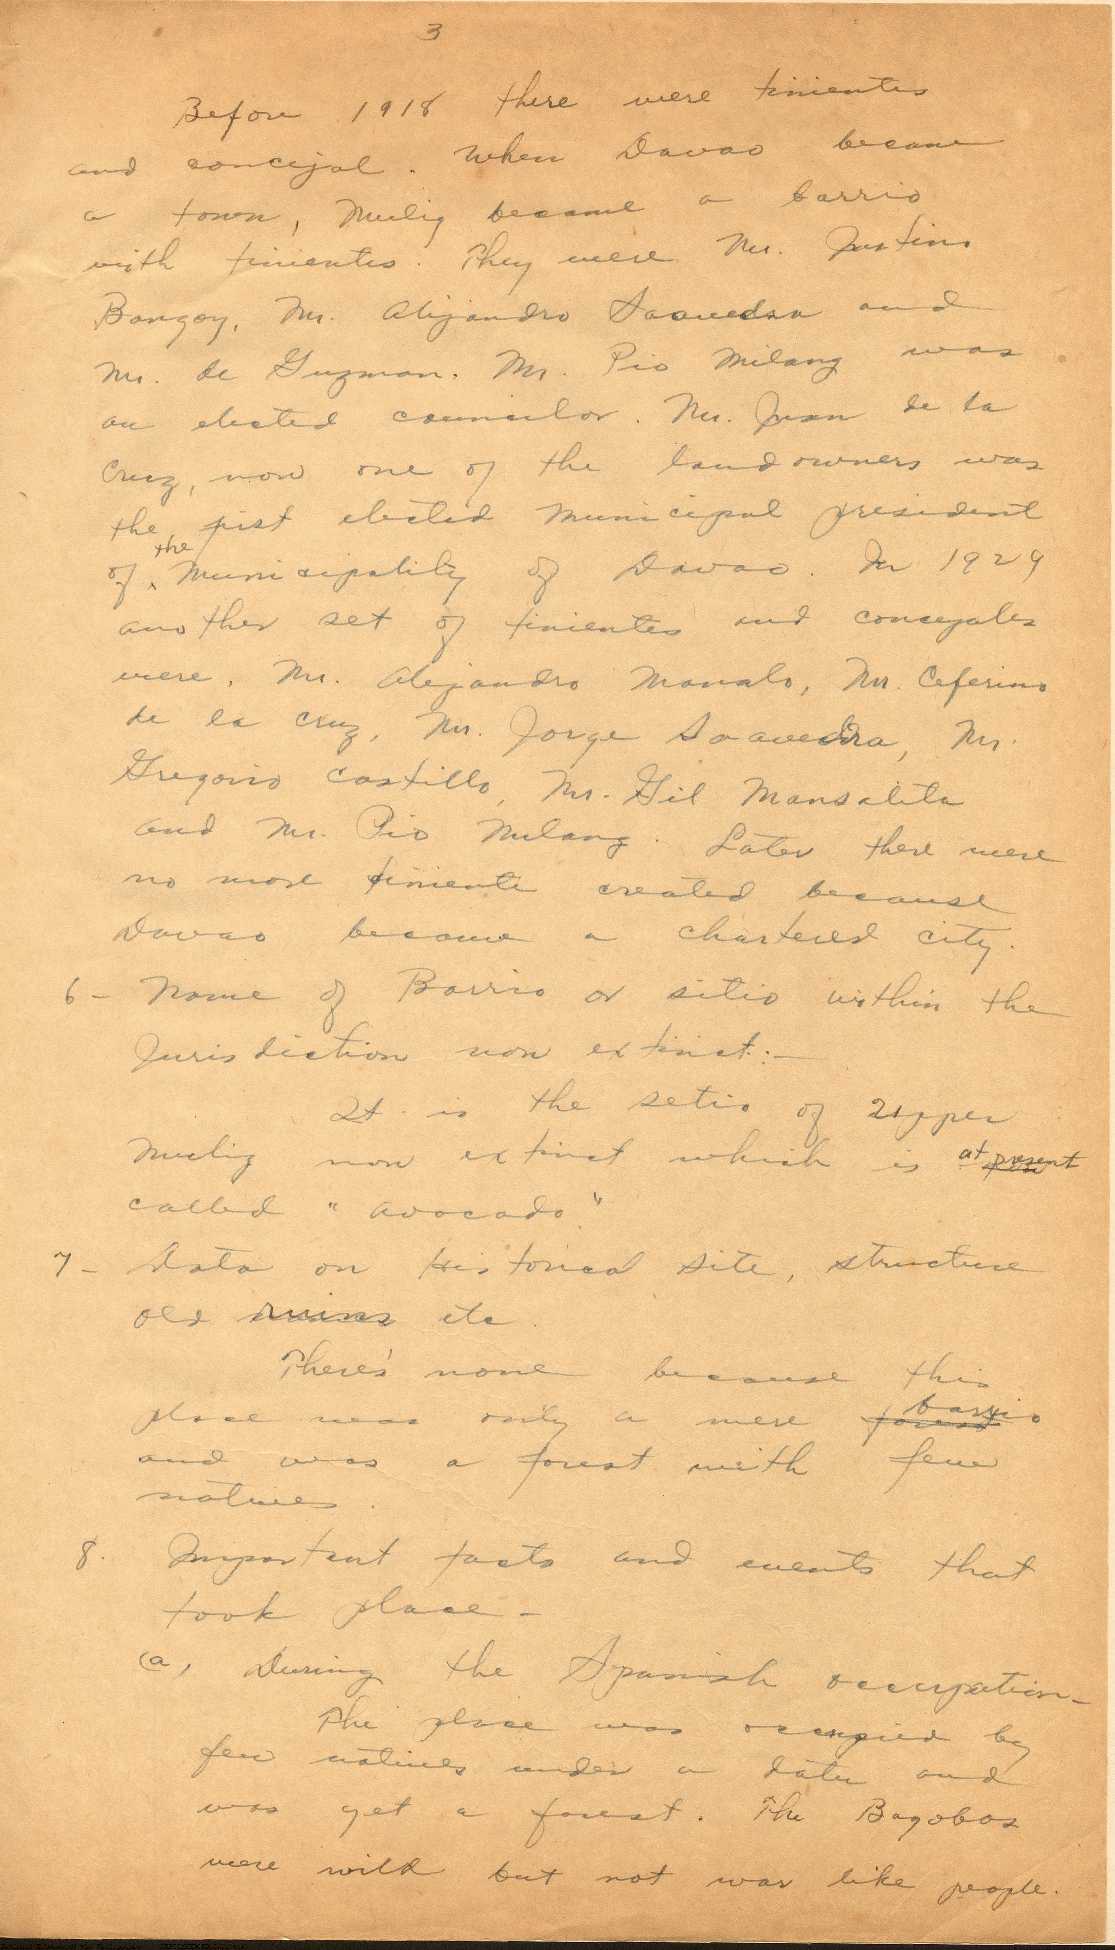 3
Before 1918 there were tinientes
and concejal. When Davao became
a town, Mulig became a barrio
with tinientes. They were Mr. Justino
Bangoy, Mr. Alijandro Saavedra and
Mr. de Guzman. Mr. Pio Milang was
an elected councilor. Mr. Juan de la
Cruz, now one of the landowners was
the first elected Municipal president
of the Municipality of Davao. In 1929
another set of tinientes and concejales
were, Mr. Alejandro Manalo, Mr. Ceferino
de la Cruz, Mr. Jorge Saavedra, Mr.
Gregorio Castillo, Mr. Gil Mansalita
and Mr. Pio Milang. Later there were
no more tiniente created because
Davao became a chartered city.
6- Name of Barrio or sitio within the
Jurisdiction now extinct:-
It is the setio of Upper
Mulig now extinct which is at present
called "Avocado."
7- Data on Historical site, structure
old ruins etc.
There's none because this
place was only a mere barrio
and was a forest with few
natives.
8. Important facts and events that
took place-
(a, During the Spanish occupation-
The place was occupied by
few natives under a datu and
was yet a forest. The Bagobos
were wild but not war like people.